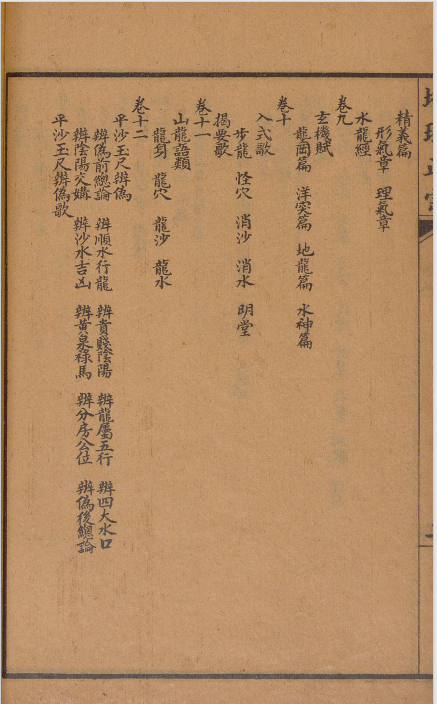 地理正宗
精義篇
形氣章 理氣章
卷九
水龍經
玄機賦
龍岡篇 洋突篇 地龍篇 水神篇
卷十
入式歌
步龍 怪穴 消沙 消水 明堂
揭要歌
卷十一
山龍語類
龍身 龍穴 龍沙 龍水
卷十二
平沙玉尺辨偽
辨偽前總論 辨順水行龍 辨貴賤陰陽 辨龍屬五行 辨四大水口
辨陰陽交媾 辨沙水吉凶 辨黃泉祿馬 辨分房公位 辨偽後總論
平沙玉尺辨偽歌